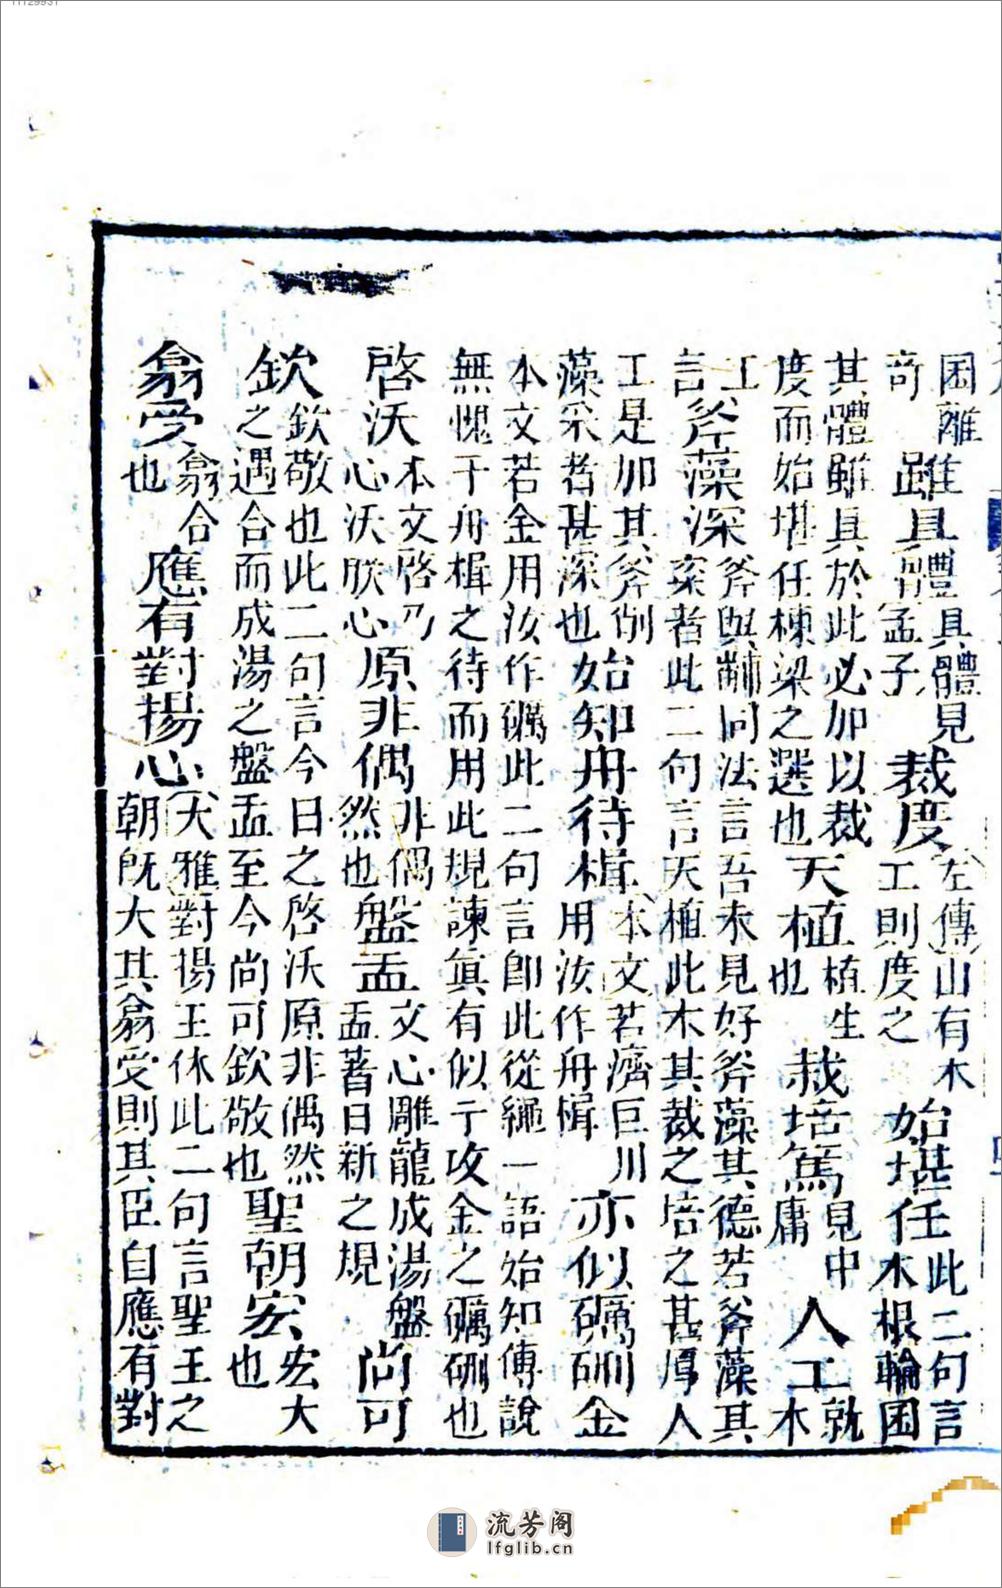 囷離奇雖具體具體見孟子裁度左傳山有木工則度之始堪任此二句言木根輪囷
其體雖具於此必加以裁度而始堪任棟梁之選也天植植生也栽培篤見中庸人工就木
工言斧藻深斧與黼同法言吾未見好斧藻其德若斧藻其案者此二句言天植此木其裁之培之甚厚人
工是加其斧削藻采者甚深也始知舟待楫本文若濟巨川用汝作舟楫亦似礪硎金
本文若金用汝作礪此二句言卽此從繩一語始知傅說無愧于舟楫之待而用此規諫眞有似于攻金之礪硎也
啓沃本文啓乃心沃朕心原非偶非偶然也盤盂文心雕龍成湯盤盂著日新之規尚可
欽欽敬也此二句言今日之啓沃原非偶然之遇合而成湯之盤盂至今尚可欽敬也聖朝宏宏大也
翕受翕合也應有對揚心大雅對揚王休此二句言聖王之朝旣大其翕受則其臣自應有對
流芳阁
lfglib.cn